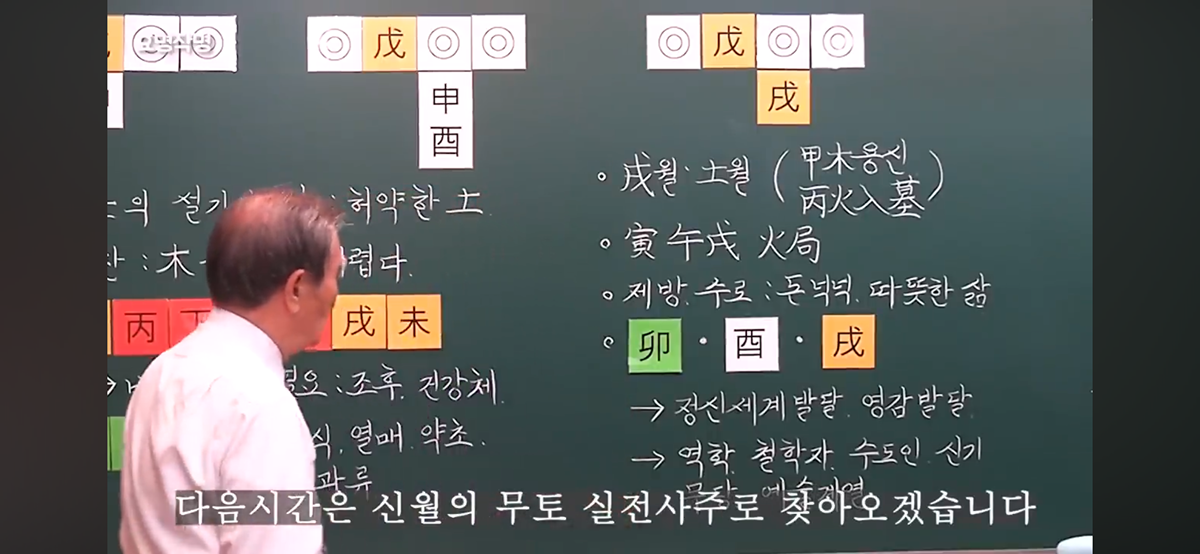 오명작명
◎ ◎
◎ 戊 ◎ ◎
申
酉
의 절기
허약한 土.
: 木
렵다.
丙 丁
戌 未
요:조후. 건강체.
식. 열매. 약초.
과류
◎ 戊 ◎ ◎
戌
• 戌월·土월 (甲木용신
丙火入墓)
• 寅午戌 火局
• 제방. 수로:돈넉넉. 따뜻한 삶
• 卯 · 酉 · 戌
→ 정신세계발달. 영감발달.
→ 역학. 철학자. 수도인. 신기
무당. 예술계열
다음시간은 신월의 무토 실전사주로 찾아오겠습니다